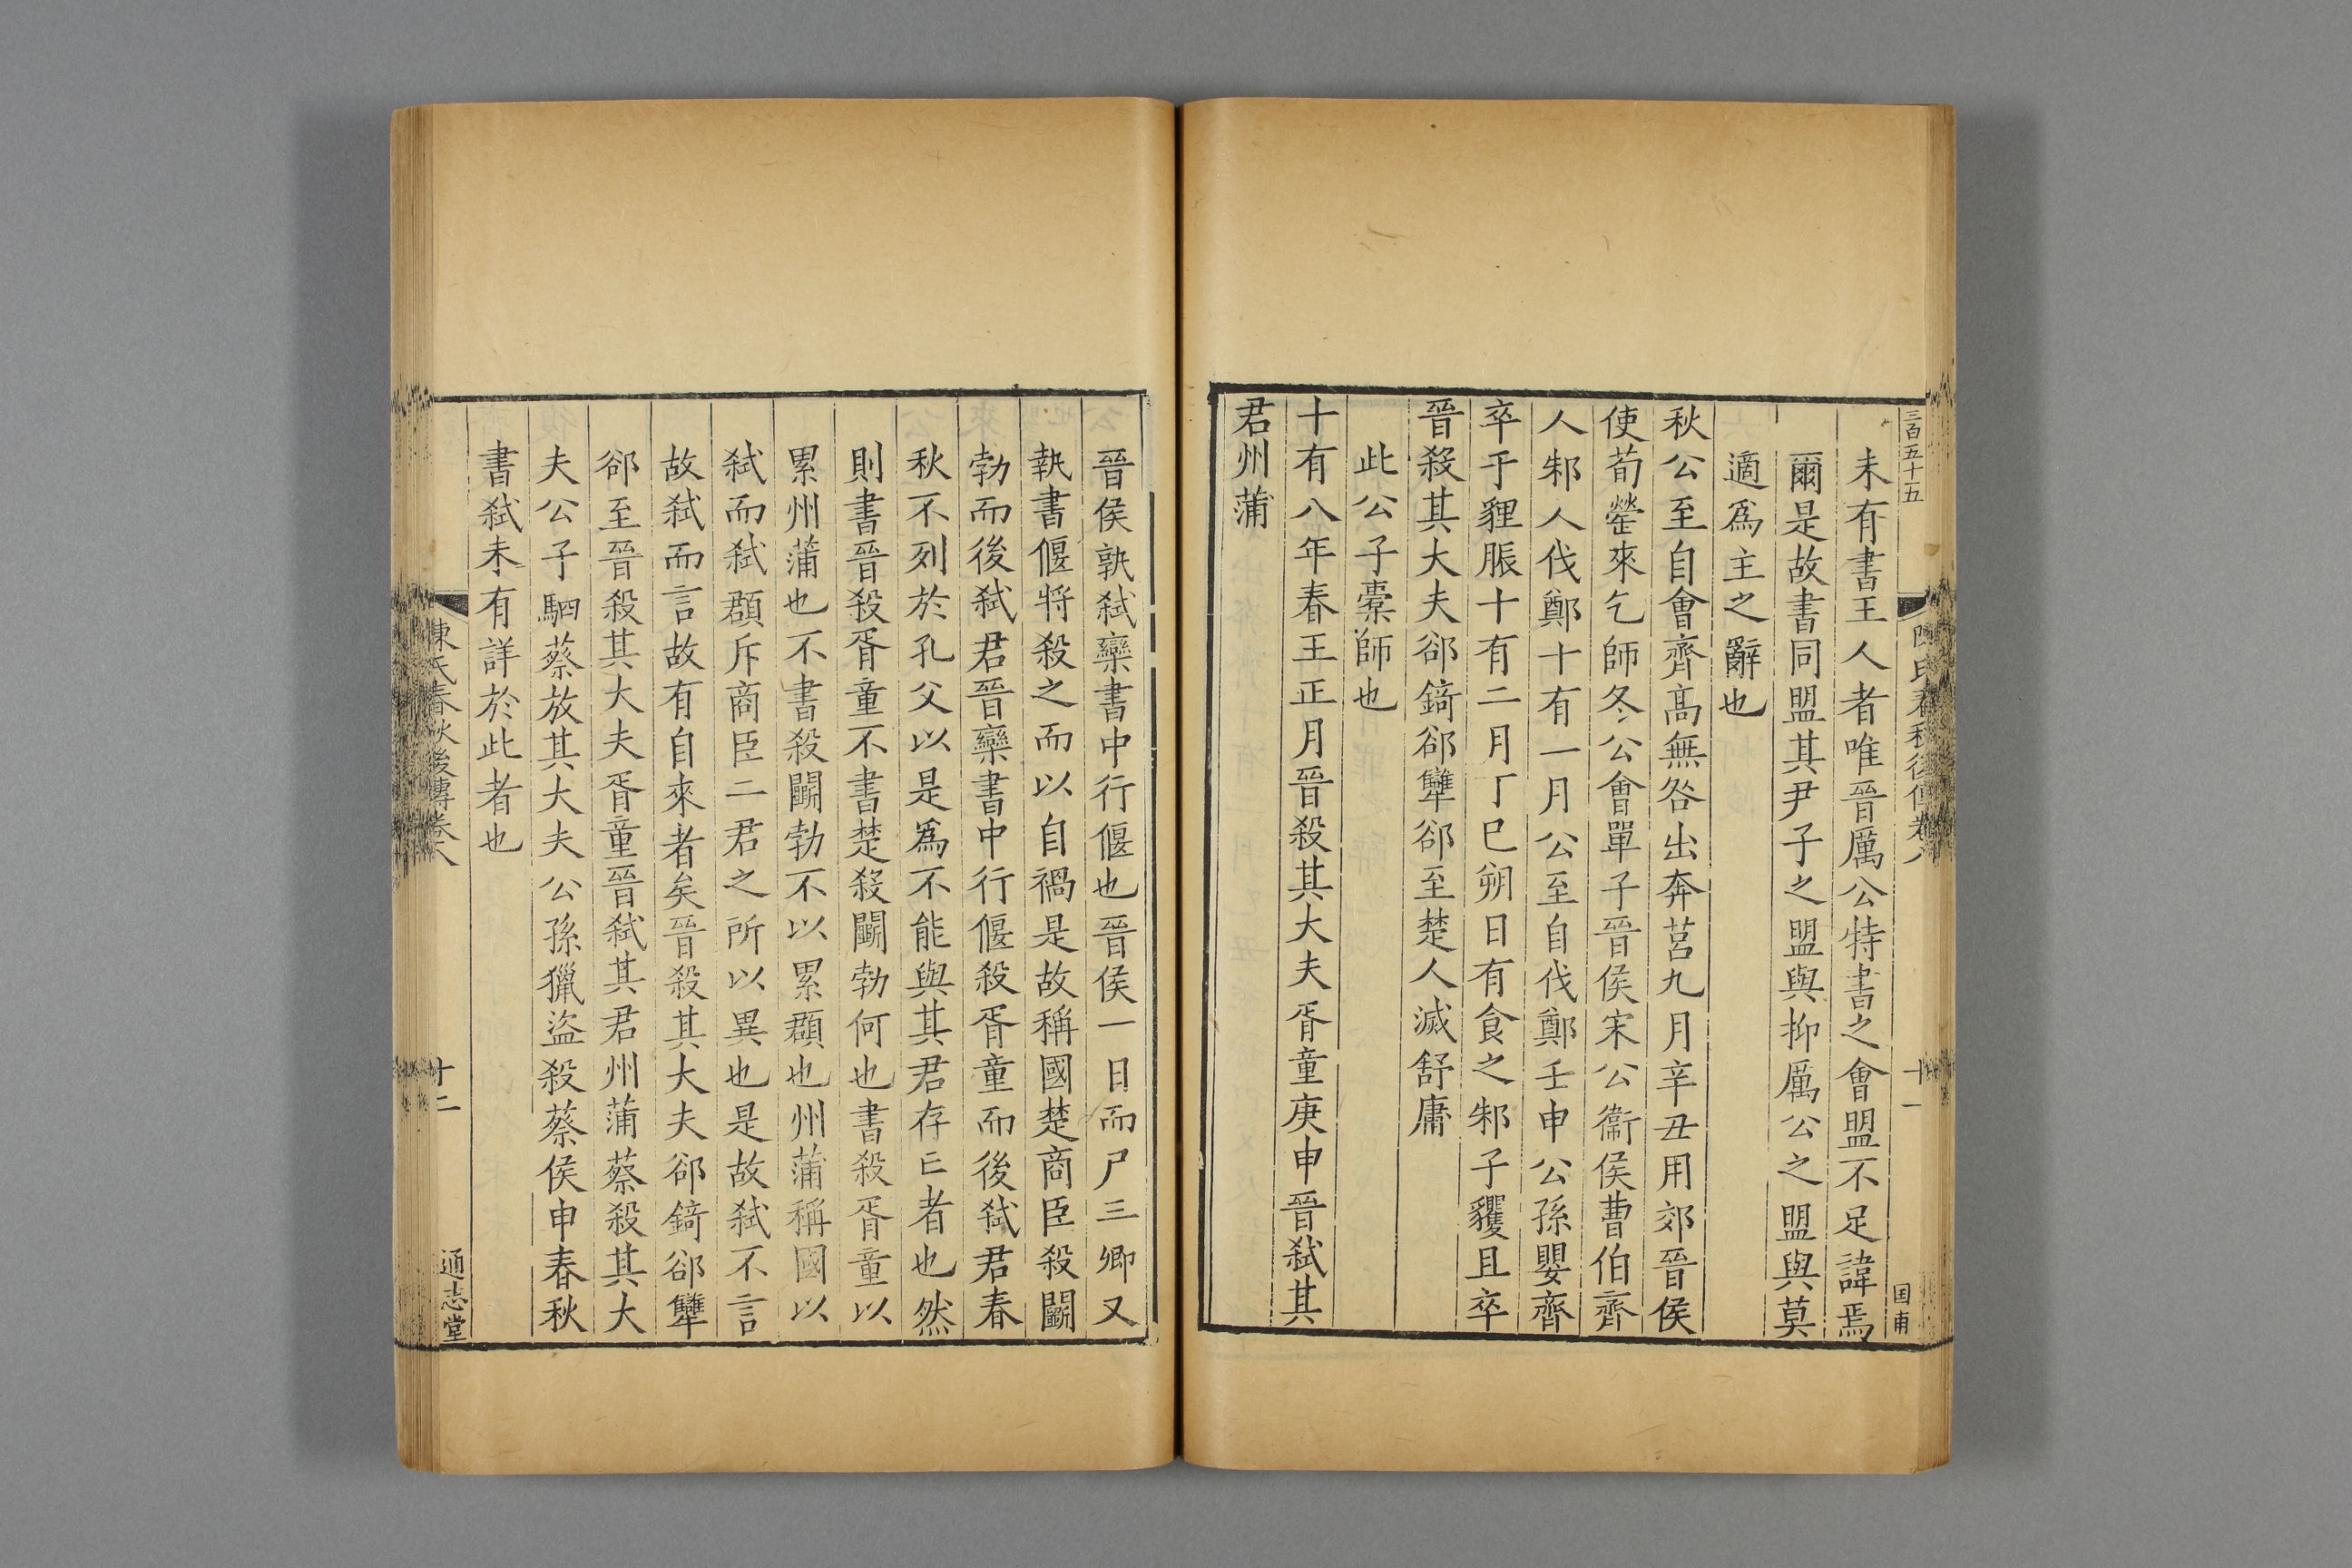 三百五十五
陳氏春秋後傳卷八
十一
国甫
未有書王人者唯晉厲公特書之會盟不足諱焉
爾是故書同盟其尹子之盟與抑厲公之盟與莫
適爲主之辭也
秋公至自會齊髙無咎出奔莒九月辛丑用郊晉侯
使荀罃來乞師冬公會單子晉侯宋公衞侯曹伯齊
人邾人伐鄭十有一月公至自伐鄭壬申公孫嬰齊
卒于貍脤十有二月丁巳朔日有食之邾子貜且卒
晉殺其大夫郤錡郤犫郤至楚人滅舒庸
此公子橐師也
十有八年春王正月晉殺其大夫胥童庚申晉弑其
君州蒲
晉侯孰弑欒書中行偃也晉侯一日而尸三卿又
執書偃將殺之而以自禍是故稱國楚商臣殺鬬
勃而後弑君晉欒書中行偃殺胥童而後弑君春
秋不列於孔父以是爲不能與其君存亡者也然
則書晉殺胥童不書楚殺鬬勃何也書殺胥童以
累州蒲也不書殺鬬勃不以累頵也州蒲稱國以
弑而弑頵斥商臣二君之所以異也是故弑不言
故弑而言故有自來者矣晉殺其大夫郤錡郤犫
郤至晉殺其大夫胥童晉弑其君州蒲蔡殺其大
夫公子駟蔡放其大夫公孫獵盜殺蔡侯申春秋
書弑未有詳於此者也
陳氏春秋後傳卷八
十二
通志堂